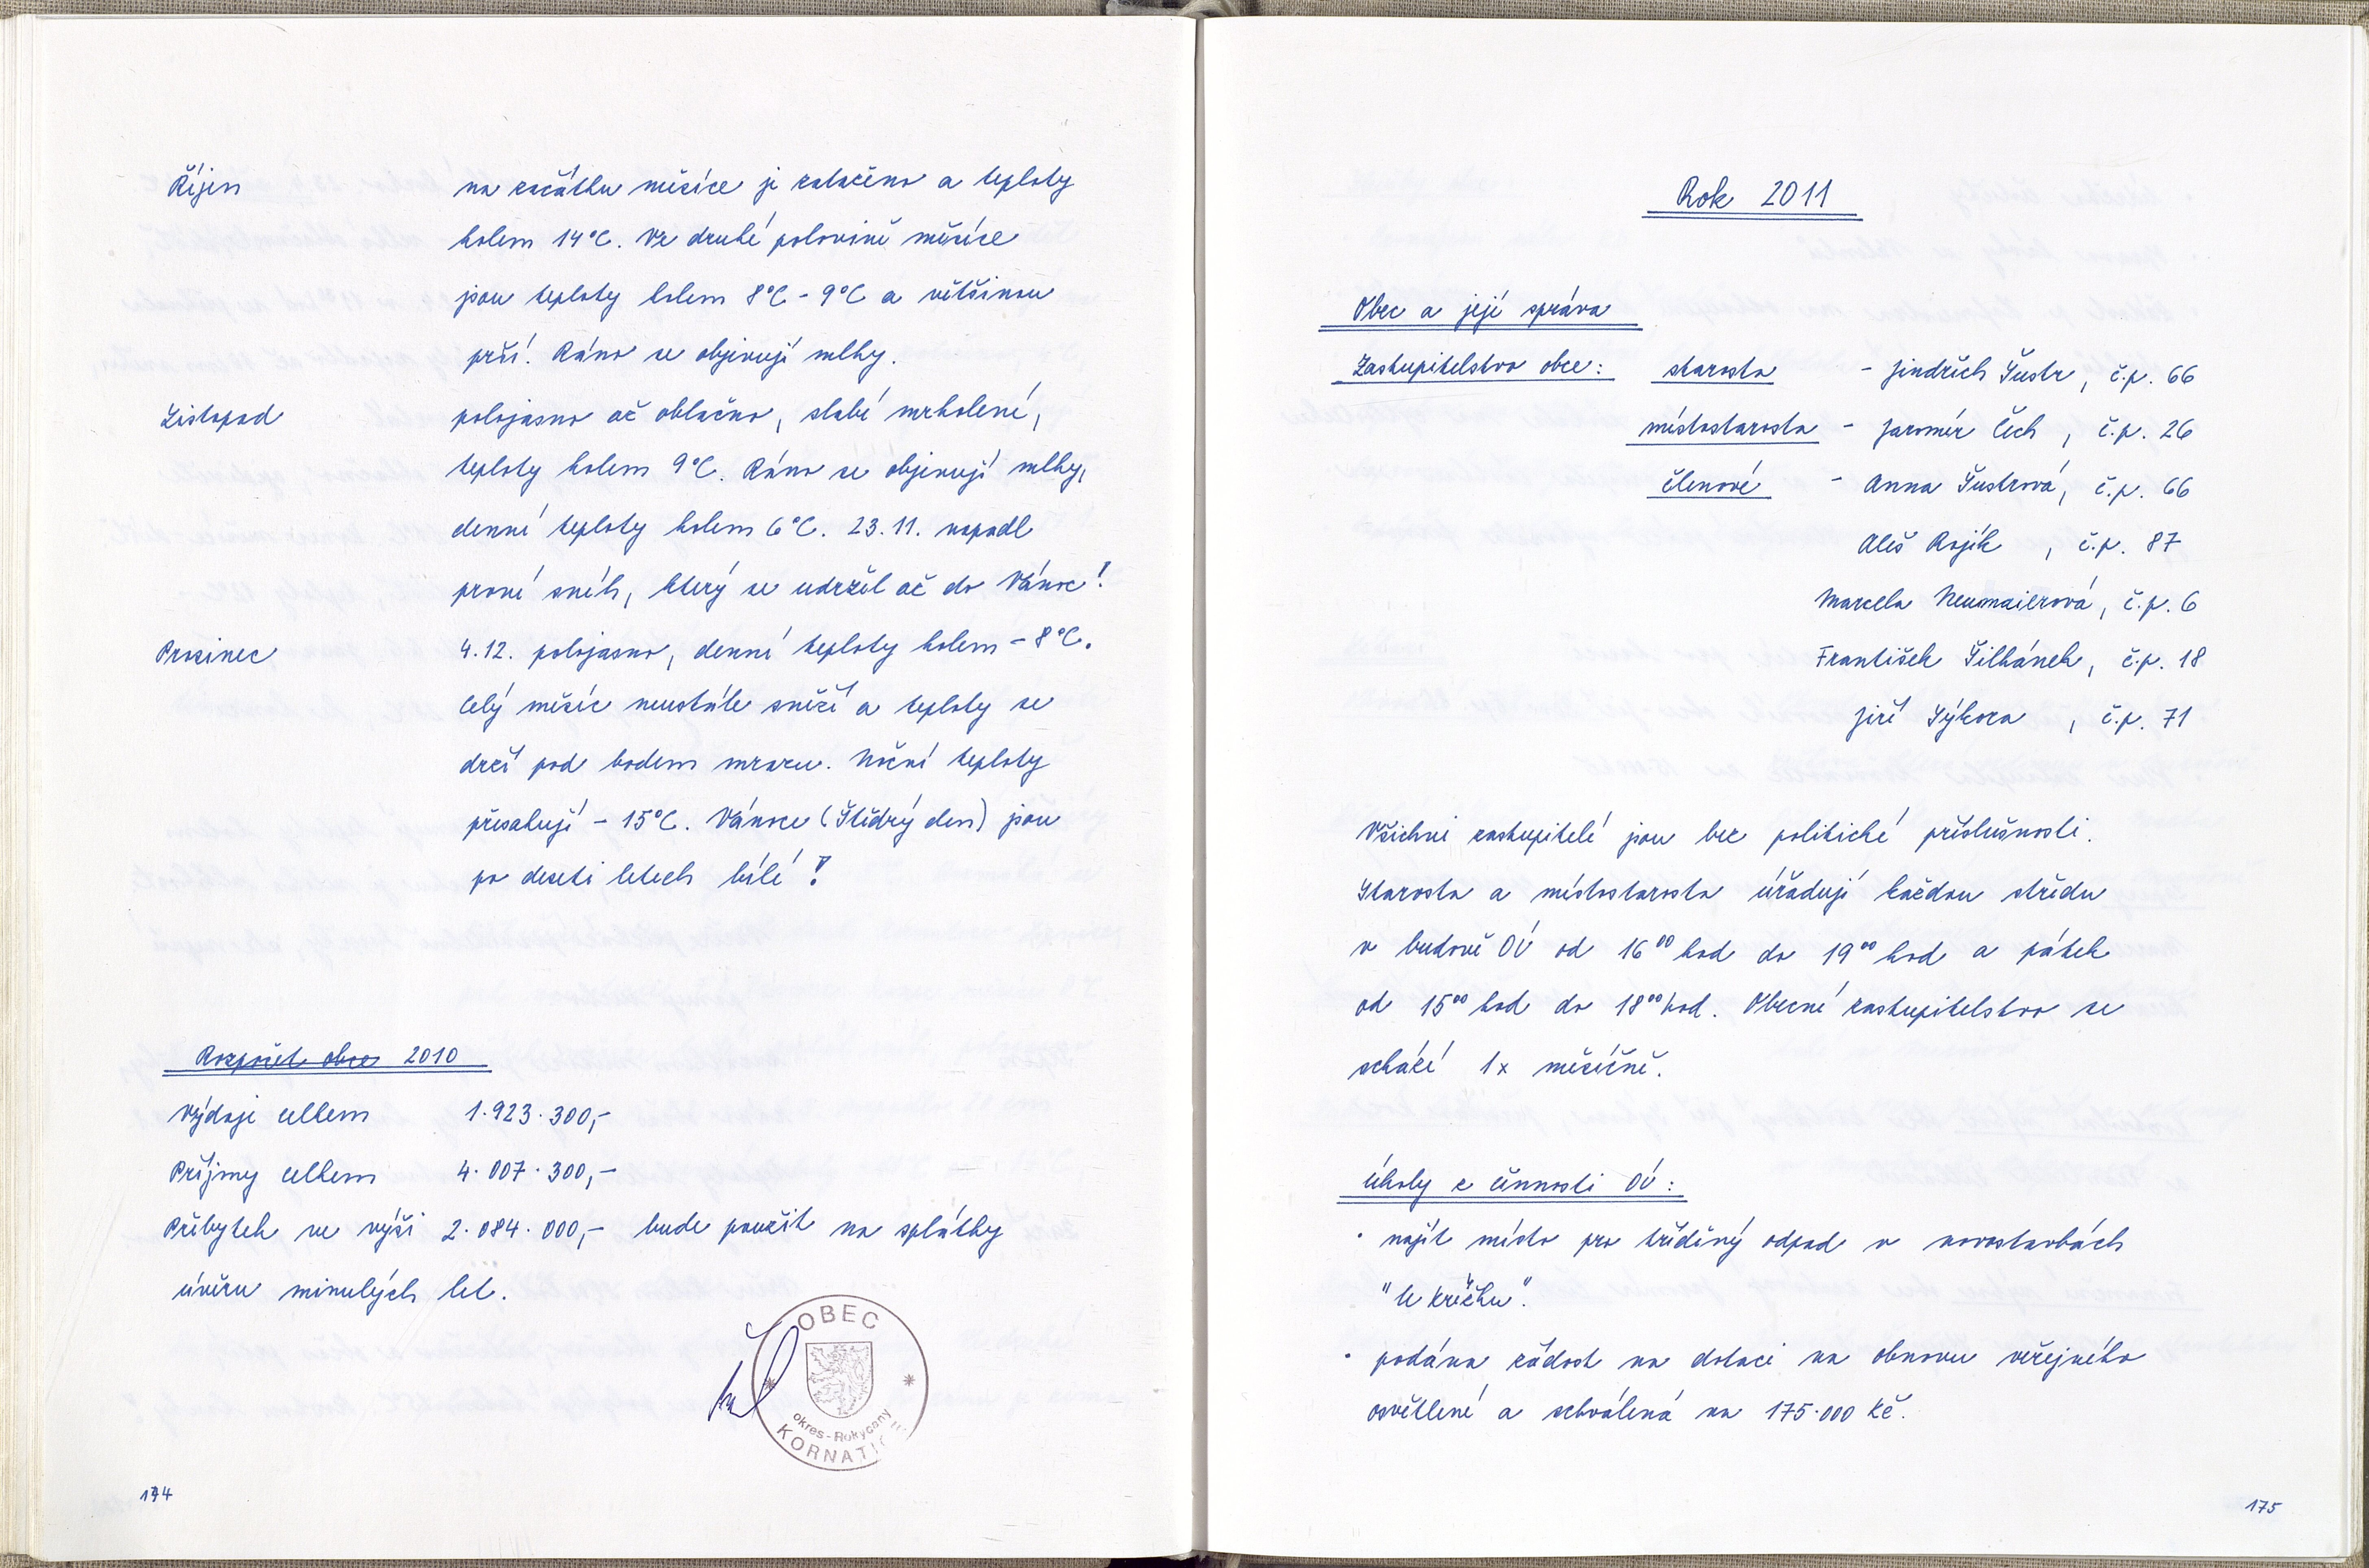 Říjen na začátku měsíce je zataženo a teploty
kolem 14°C. Ve druhé polovině měsíce
jsou teploty kolem 8°C - 9°C a většinou
prší. Ráno se objevují mlhy.
Listopad polojasno až oblačno, slabé mrholení,
teploty kolem 9°C. Ráno se objevují mlhy,
denní teploty kolem 6°C. 23.11. napadl
první sníh, který se udržel až do Vánoc!
Prosinec 4.12. polojasno, denní teploty kolem -8°C.
Celý měsíc neustále sněží a teploty se
drží pod bodem mrazu. Noční teploty
přesahují -15°C. Vánoce (Štědrý den) jsou
po deseti letech bílé!
Rozpočet obce 2010
Výdaje celkem 1.923.300,-
Příjmy celkem 4.007.300,-
Přebytek ve výši 2.084.000,- bude použit na splátky
úvěru minulých let.
OBEC
okres - Rokycany
KORNATICE
174
Rok 2011
Obec a její správa
Zastupitelstvo obce: starosta - Jindřich Šustr, č.p. 66
místostarosta - Jaromír Čech, č.p. 26
členové - Anna Šustrová, č.p. 66
Aleš Rojík, č.p. 87
Marcela Neumaierová, č.p. 6
František Šilhánek, č.p. 18
Jiří Sýkora, č.p. 71
Všichni zastupitelé jsou bez politické příslušnosti.
Starosta a místostarosta úřadují každou středu
v budově OÚ od 16⁰⁰ hod do 19⁰⁰ hod a pátek
od 15⁰⁰ hod do 18⁰⁰ hod. Obecné zastupitelstvo se
schází 1x měsíčně.
Úkoly z činnosti OÚ:
· najít místo pro tříděný odpad v novostavbách
"U Křížku".
· podána žádost na dotaci na obnovu veřejného
osvětlení a schválená na 175.000 Kč.
175